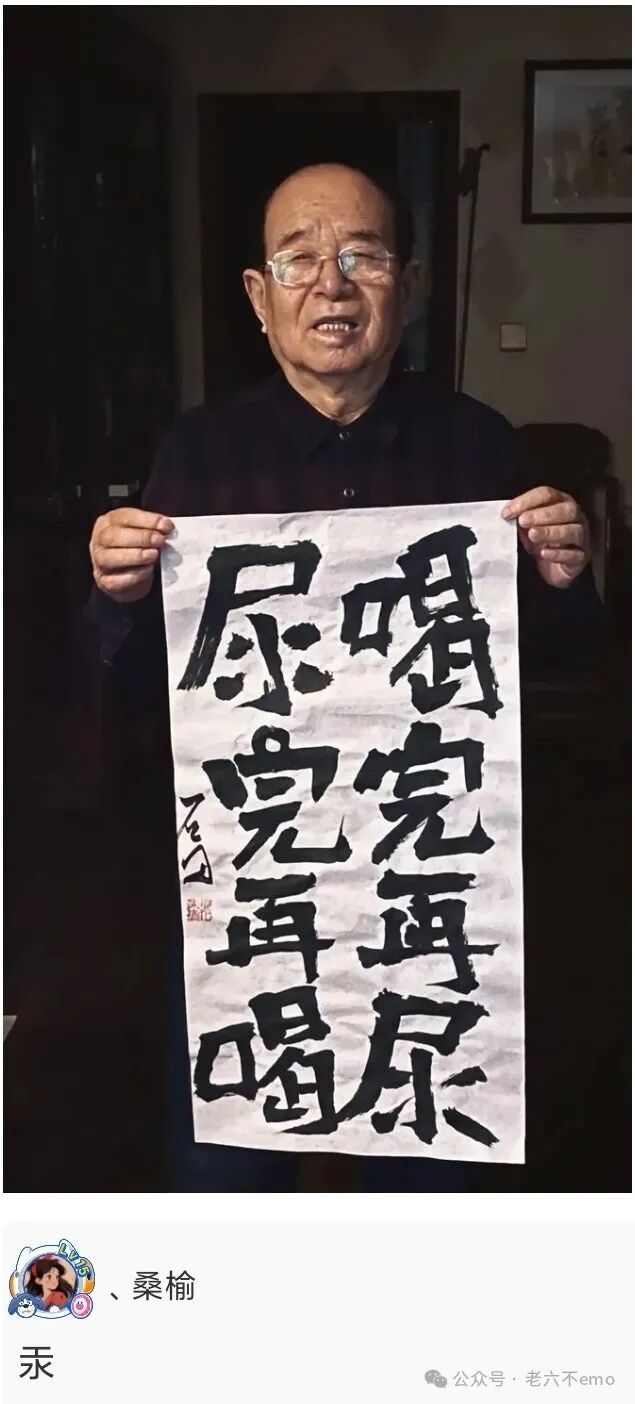 喝完再尿
尿完再喝
石风
Lv15
、桑榆
汞
公众号 · 老六不emo